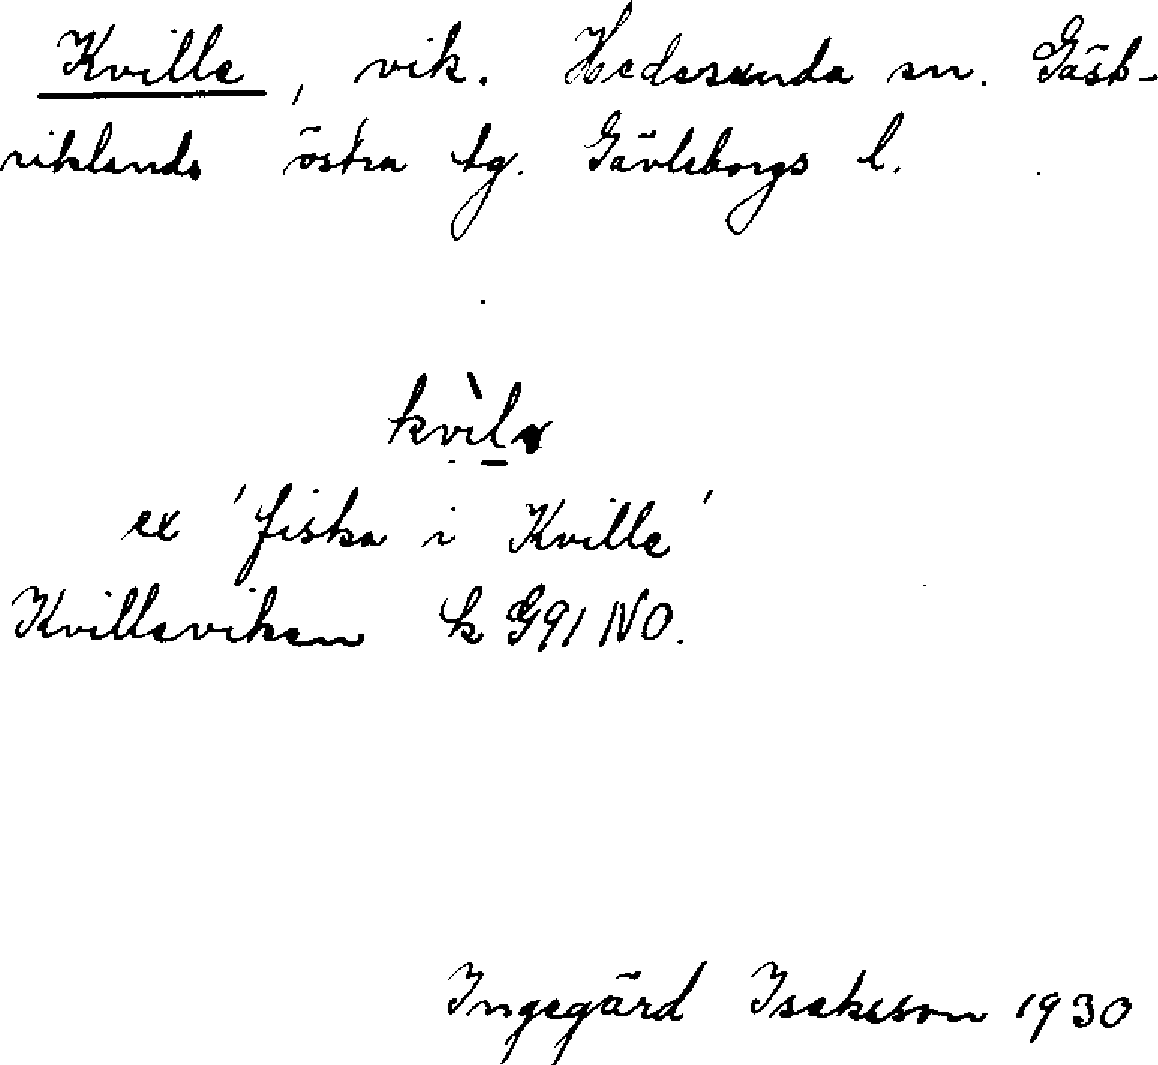 Kville, vik. Hedesunda sn. Gäst-
riklands östra tg. Gävleborgs l.
ex 'fiska i Kville'
Kvilleviken k G91 NO.
Ingegärd Isakson 1930